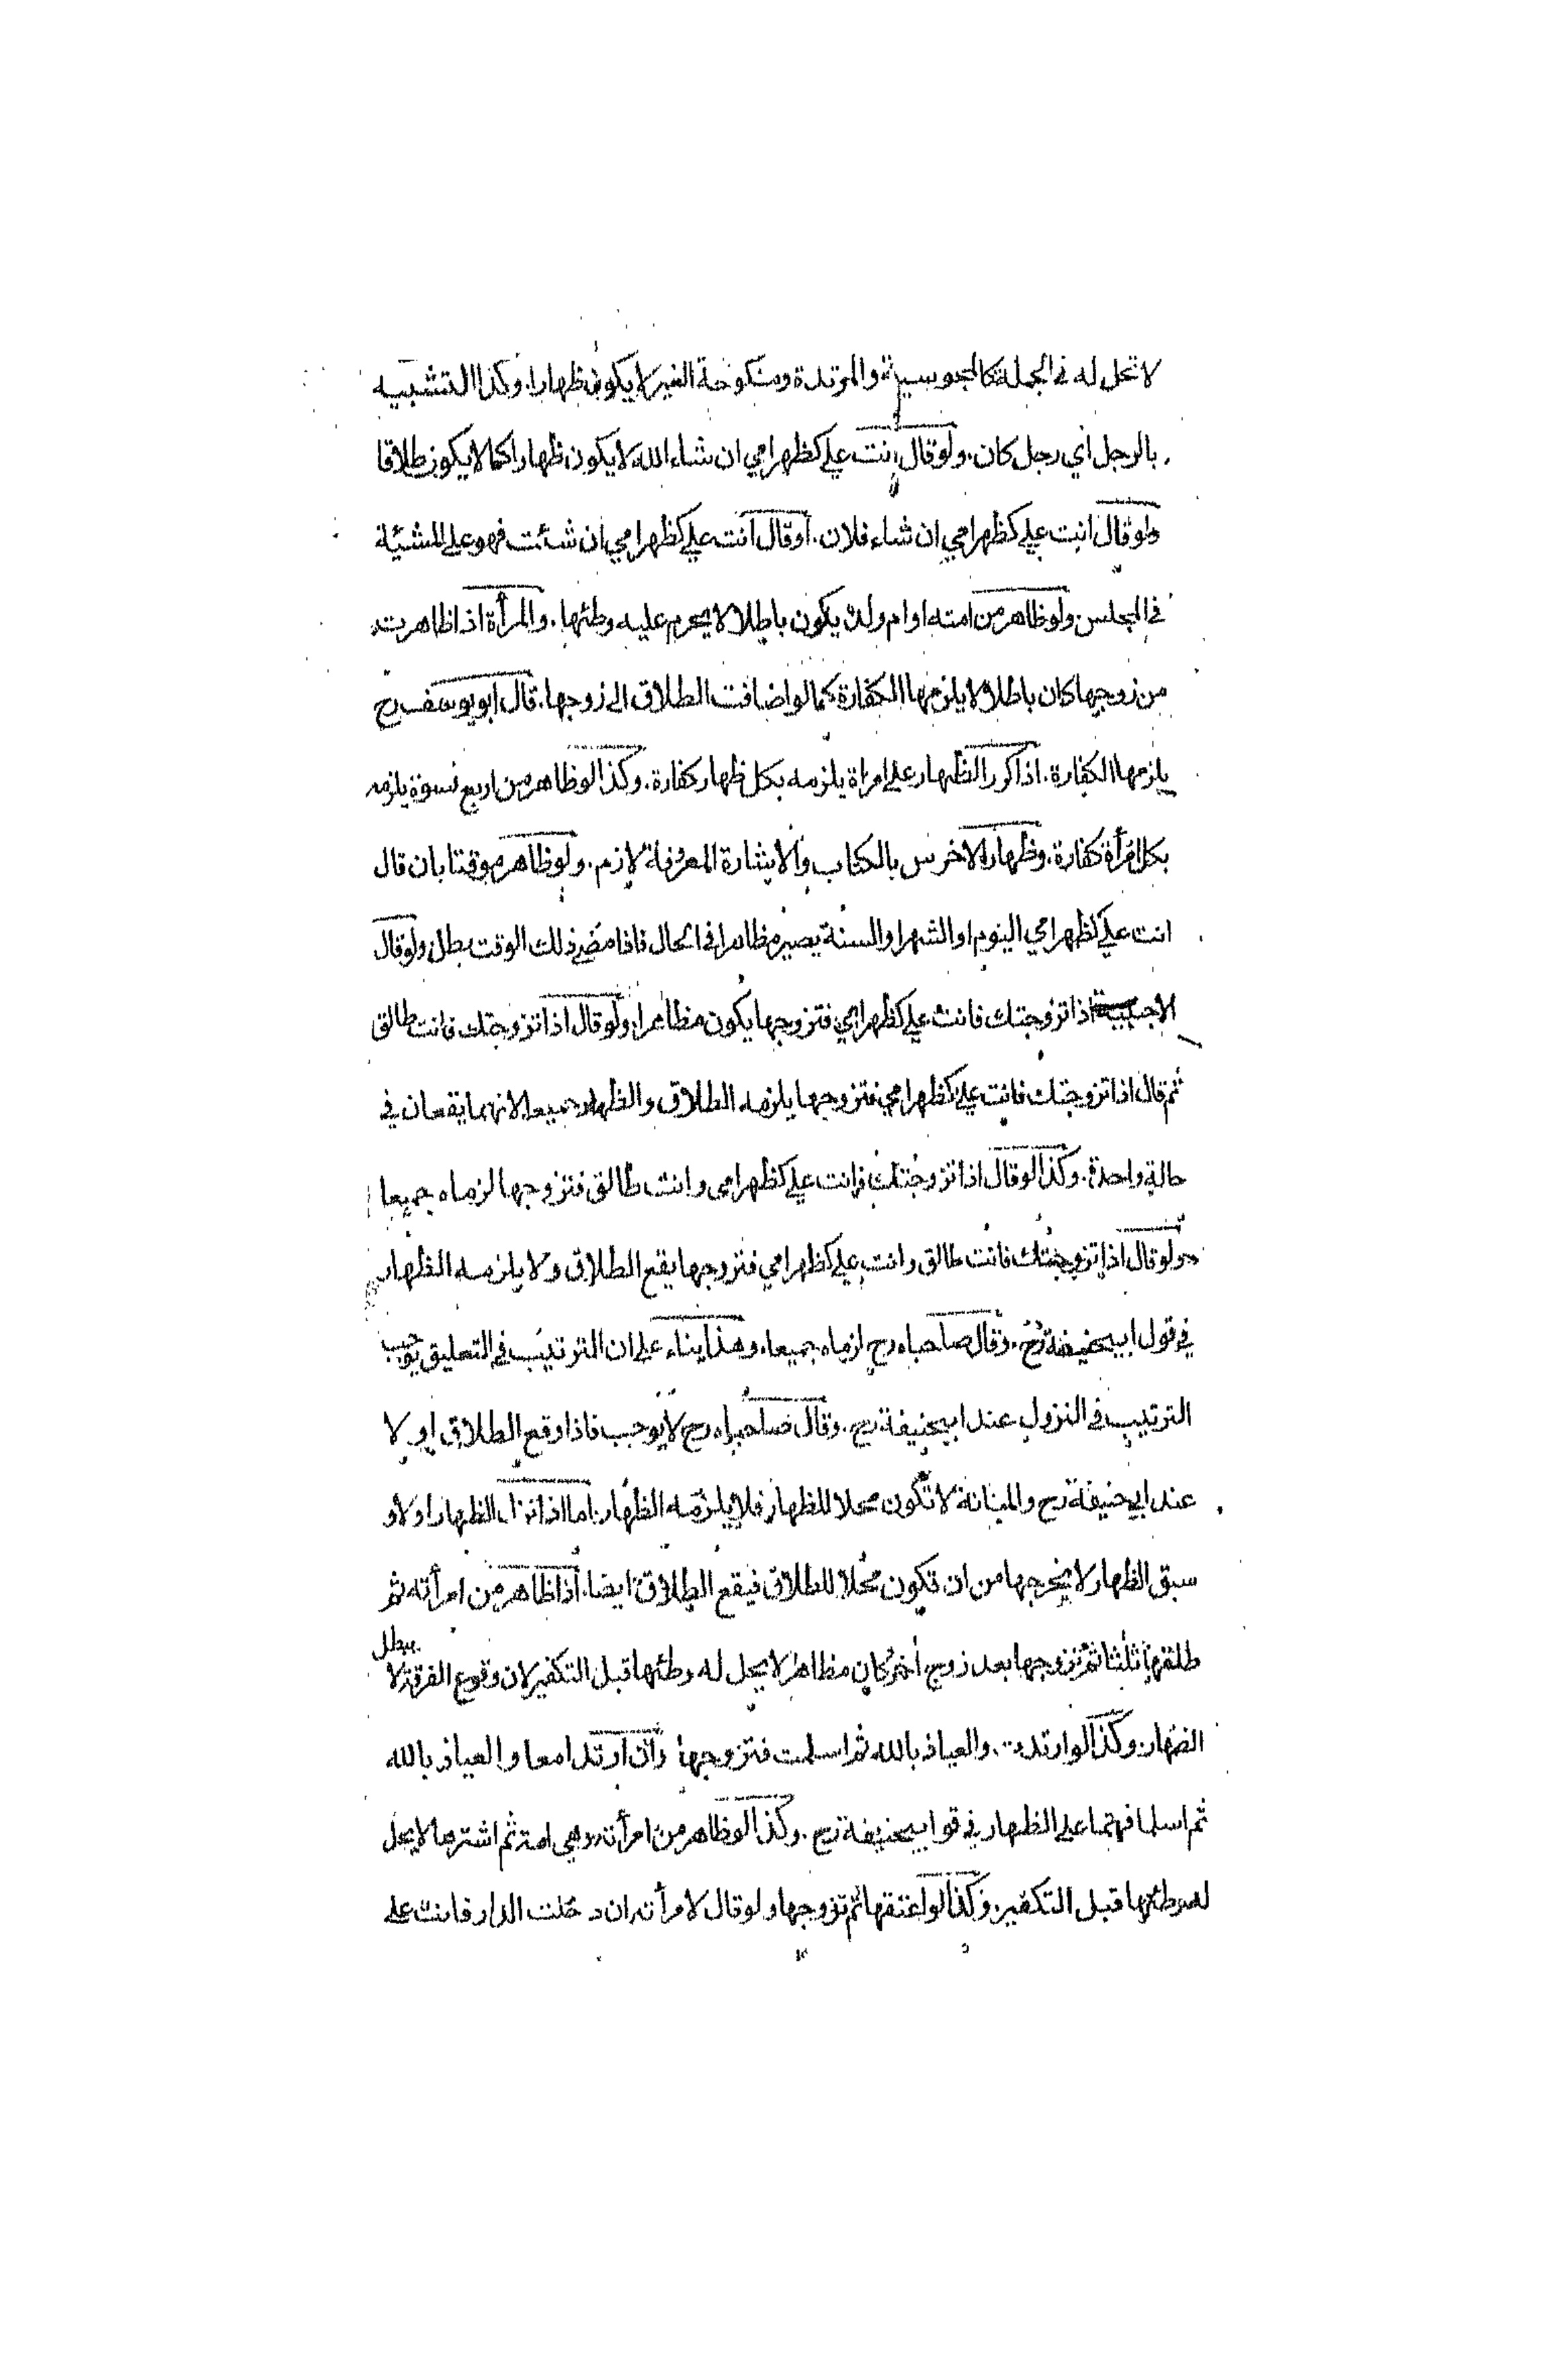 لا تحل له في الجملة كالمجوسية والمرتدة ومنكوحة الغير لا يكون ظهارا. وكذا التشبيه
بالرجل اي رجل كان. ولو قال انت علي كظهر امي ان شاء الله لا يكون ظهارا كما لا يكون طلاقا
ولو قال انت علي كظهر امي ان شاء فلان. او قال انت علي كظهر امي ان شئت فهو على المشيئة
في المجلس ولو ظاهر من امته او ام ولده يكون باطلا لا يحرم عليه وطئها. والمرأة اذا ظاهرت
من زوجها كان باطلا لا يلزمها الكفارة كما لو اضافت الطلاق الى زوجها. قال ابو يوسف رح
يلزمها الكفارة. اذا كرر الظهار على امراة يلزمه بكل ظهار كفارة. وكذا لو ظاهر من اربع نسوة يلزمه
بكل امرأة كفارة. وظهار الاخرس بالكتاب والاشارة المعروفة لازم. ولو ظاهر موقتا بان قال
انت علي كظهر امي اليوم او الشهر او السنة يصير مظاهرا في الحال فاذا مضى ذلك الوقت بطل ولو قال
لاجنبية اذا تزوجتك فانت علي كظهر امي فتزوجها يكون مظاهرا ولو قال اذا تزوجتك فانت طالق
ثم قال اذا تزوجتك فانت علي كظهر امي فتزوجها يلزمه الطلاق والظهار جميعا لانهما يقعان في
حالة واحدة. وكذا لو قال اذا تزوجتك فانت علي كظهر امي وانت طالق فتزوجها لزماه جميعا
ولو قال اذا تزوجتك فانت طالق وانت علي كظهر امي فتزوجها يقع الطلاق ولا يلزمه الظهار
في قول ابيحنيفة رح. وقال صاحباه رح لزماه جميعا. وهذا بناء على ان الترتيب في التعليق يوجب
الترتيب في النزول عند ابيحنيفة رح. وقال صاحباه رح لا يوجب فاذا وقع الطلاق اولا
عند ابي حنيفة رح والمبانة لا تكون محلا للظهار فلا يلزمه الظهار. اما اذا نزل الظهار اولا و
سبق الظهار لا يخرجها من ان تكون محلا للطلاق فيقع الطلاق ايضا. اذا ظاهر من امرأته ثم
طلقها ثلثا ثم تزوجها بعد زوج اخر كان مظاهرا لا يحل له وطئها قبل التكفير لان وقوع الفرقة لا يبطل
الظهار. وكذا لو ارتدت. والعياذ بالله ثم اسلمت فتزوجها وان ارتدا معا والعياذ بالله
ثم اسلما فهما على الظهار في قو ابيحنيفة رح. وكذا لو ظاهر من امرأته وهي امة ثم اشترىها لا يحل
له وطئها قبل التكفير. وكذا لو اعتقها ثم تزوجها ولو قال لامرأته ان دخلت الدار فانت علي